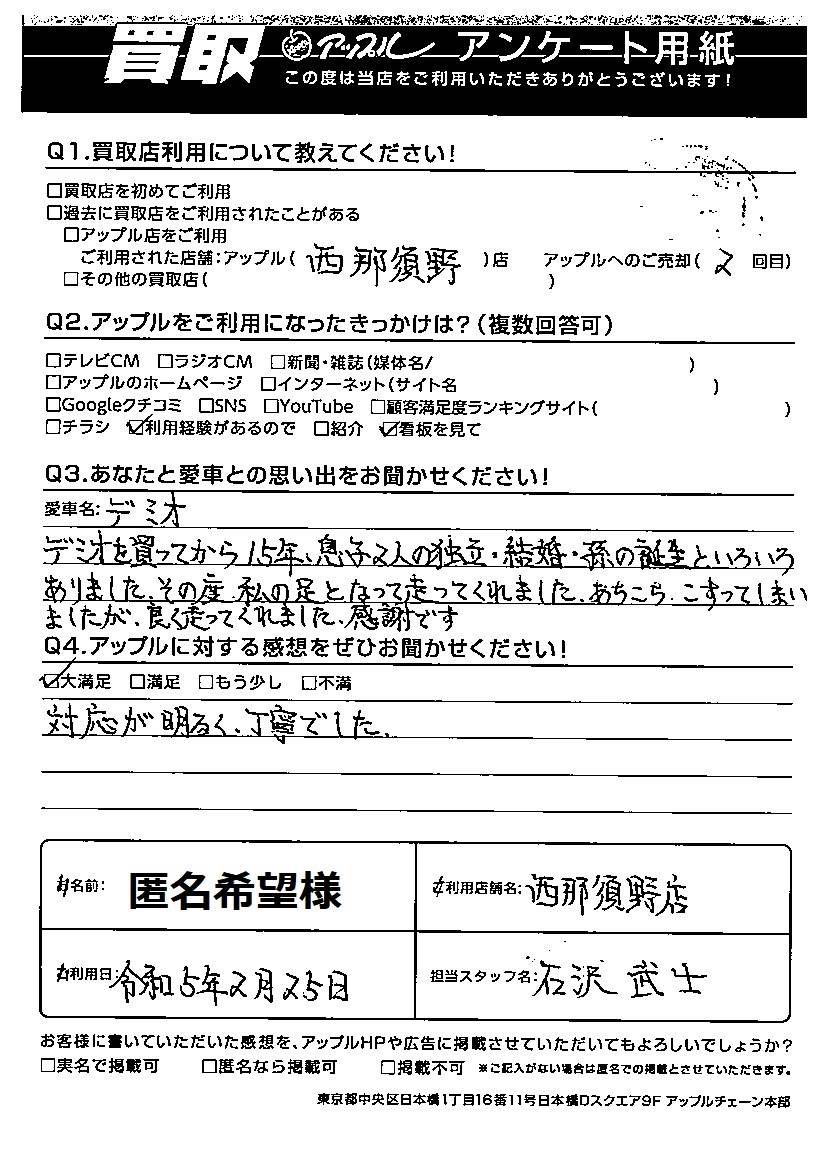 買取 アップル アンケート用紙
この度は当店をご利用いただきありがとうございます!
Q1.買取店利用について教えてください!
□買取店を初めてご利用
□過去に買取店をご利用されたことがある
□アップル店をご利用
ご利用された店舗:アップル( 西那須野 )店 アップルへのご売却( 2 回目)
□その他の買取店( )
Q2.アップルをご利用になったきっかけは?(複数回答可)
□テレビCM □ラジオCM □新聞・雑誌(媒体名/ )
□アップルのホームページ □インターネット(サイト名 )
□Googleクチコミ □SNS □YouTube □顧客満足度ランキングサイト( )
□チラシ ☑利用経験があるので □紹介 ☑看板を見て
Q3.あなたと愛車との思い出をお聞かせください!
愛車名:デミオ
デミオを買ってから15年、息子2人の独立・結婚・孫の誕生といろいろ
ありました、その度、私の足となって走ってくれました、あちこち、こすってしまい
ましたが、良く走ってくれました、感謝です
Q4.アップルに対する感想をぜひお聞かせください!
☑大満足 □満足 □もう少し □不満
対応が明るく、丁寧でした、
お名前: 匿名希望様
ご利用店舗名:西那須野店
ご利用日:令和5年2月25日
担当スタッフ名:石沢 武士
お客様に書いていただいた感想を、アップルHPや広告に掲載させていただいてもよろしいでしょうか?
□実名で掲載可 □匿名なら掲載可 □掲載不可 ※ご記入がない場合は匿名での掲載とさせていただきます。
東京都中央区日本橋1丁目16番11号日本橋Dスクエア9F アップルチェーン本部